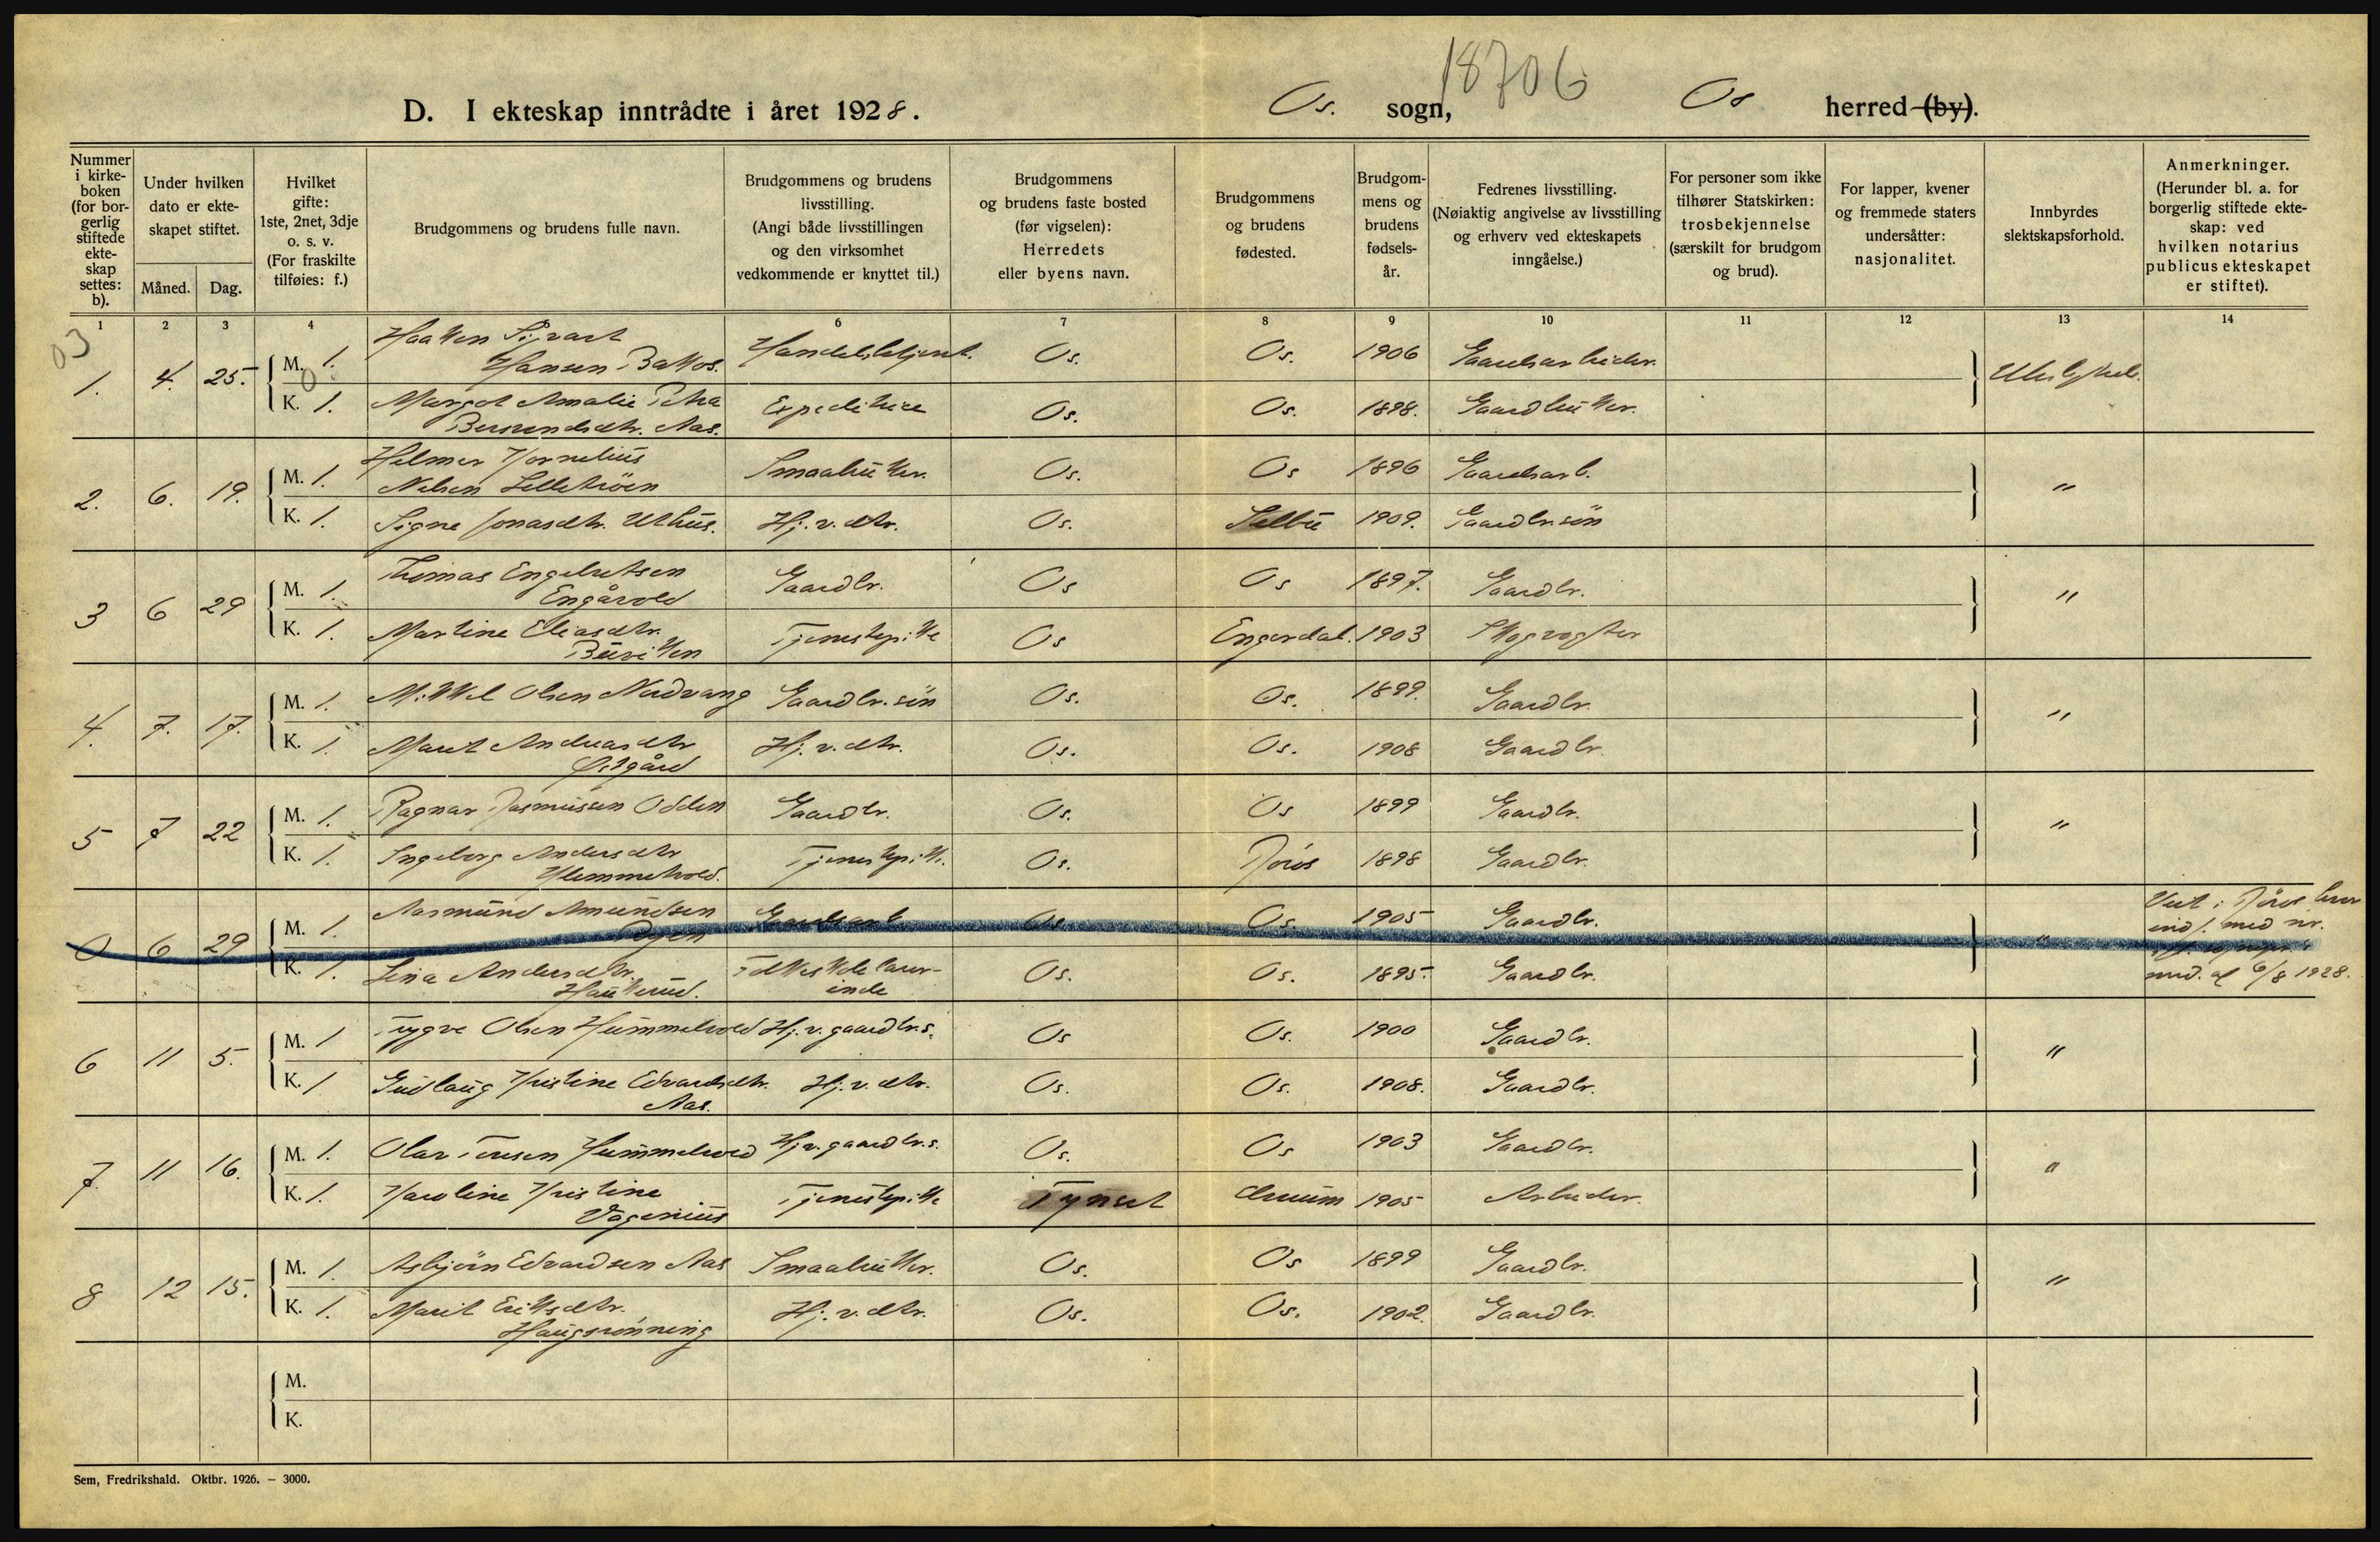 18706
D. I ekteskap inntrådte i året 1928. Os. sogn, Os herred (by).
Nummer i kirke-boken (for bor-gerlig stiftede ekte-skap settes: b).
Under hvilken dato er ekte-skapet stiftet.
Måned. Dag.
Hvilket gifte: 1ste, 2net, 3dje o. s. v. (For fraskilte tilføies: f.)
Brudgommens og brudens fulle navn.
Brudgommens og brudens livsstilling. (Angi både livsstillingen og den virksomhet vedkommende er knyttet til.)
Brudgommens og brudens faste bosted (før vigselen): Herredets eller byens navn.
Brudgommens og brudens fødested.
Brudgom-mens og brudens fødsels-år.
Fedrenes livsstilling. (Nøiaktig angivelse av livsstilling og erhverv ved ekteskapets inngåelse.)
For personer som ikke tilhører Statskirken: trosbekjennelse (særskilt for brudgom og brud).
For lapper, kvener og fremmede staters undersåtter: nasjonalitet.
Innbyrdes slektskapsforhold.
Anmerkninger. (Herunder bl. a. for borgerlig stiftede ekte-skap: ved hvilken notarius publicus ekteskapet er stiftet).
1 2 3 4 5 6 7 8 9 10 11 12 13 14
03
1. 4. 25. M. 1. Haakon Sigvart Hansen Bakkos. Handelsbetjent. Os. Os. 1906 Gaardsarbeider.
0
K. 1. Margot Amalie Petra Berntsdtr. Aas. Expeditrice Os. Os. 1898. Gaardbruker.
2. 6. 19. M. 1. Helmer Kornelius Nilsen Lilletrøen Smaabruker. Os. Os 1896 Gaardsarb. "
K. 1. Signe Jonasdtr. Uthus. Hj. v. dtr. Os. Selbu 1909. Gaardbr.søn
3 6 29 M. 1. Thomas Engebretsen Engåvold Gaardbr. Os Os 1897. Gaardbr. "
K. 1. Martine Eliasdtr. Tjenestepike Os Engerdal. 1903 Skogvogter
4. 7. 17. M. 1. Mikkel Olsen Nordvang Gaardbr. søn Os. Os. 1899. Gaardbr. "
K. 1. Marit Andreasdtr Østgård Hj. v. dtr. Os. Os. 1908 Gaardbr.
5 7 22 M. 1. Ragnar Rasmussen Odden Gaardbr. Os. Os 1899 Gaardbr. "
K. 1. Ingeborg Andersdtr Klemmetvold. Tjenestepike. Os. Røros 1898 Gaardbr.
0 6 29 M. 1. Aasmund Amundsen Gaardsarb Os. Os. 1905 Gaardbr. "
Viet i Røros
K. 1. Lina Andersdtr. Haukerud. Os. Os. 1895. Gaardbr. 6/8 1928.
6 11 5. M. 1 Trygve Olsen Hummelvold Hj. v. gaardbr. s. Os Os. 1900 Gaardbr. "
K. 1 Gudlaug Kristine Edvardsdtr. Aas. Hj. v. dtr. Os. Os. 1908. Gaardbr.
7. 11 16. M. 1. Olav Tensen Hummelvold Hj. v. gaardbr. s. Os. Os 1903 Gaardbr. "
K. 1. Karoline Kristine Vogenius Tjenestepike Tynset 1905 Arbeider.
8 12 15. M. 1. Asbjörn Edvardsen Aas Smaabruker. Os. Os 1899 Gaardbr. "
K. 1. Marit Eriksdtr. Haugrønning Hj. v. dtr. Os. Os. 1902. Gaardbr.
M.
K.
Sem, Fredrikshald. Oktbr. 1926. – 3000.